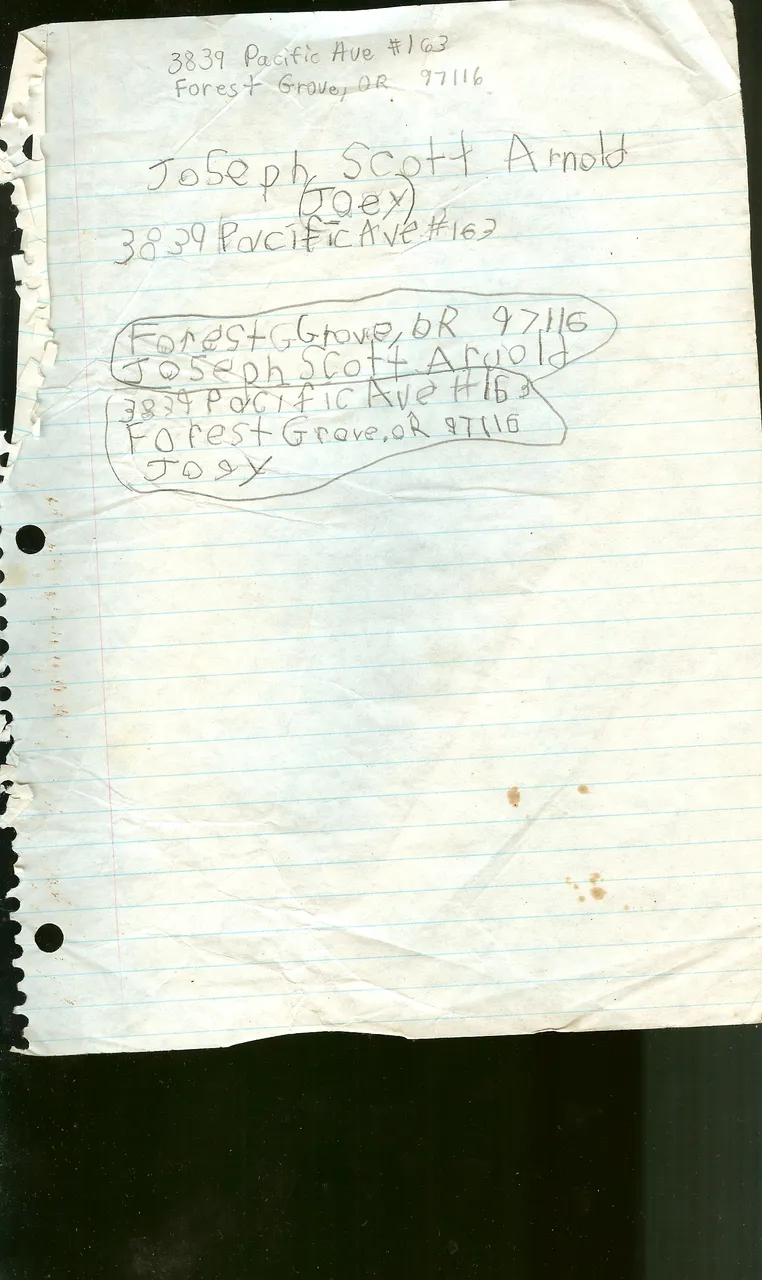 3839 Pacific Ave #163
Forest Grove, OR 97116
Joseph Scott Arnold
(Joey)
3839 Pacific Ave #163
Forest GGrove, OR 97116
Joseph Scott Arnold
3839 Pacific Ave #163
Forest Grove, OR 97116
Joey